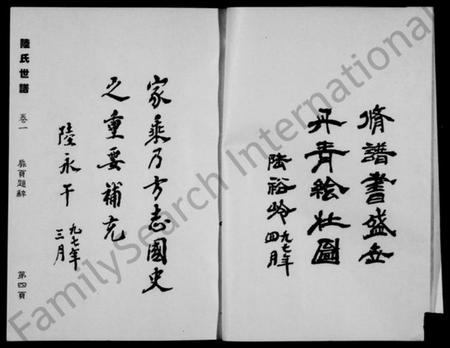 脩譜書盛世
丹青绘壮图
陆裕岭 九七年
四月
家乘乃方志國史
之重要補充
陸永干 九七年
三月
陸氏世譜
卷一
扉頁題辭
第四頁
FamilySearch International